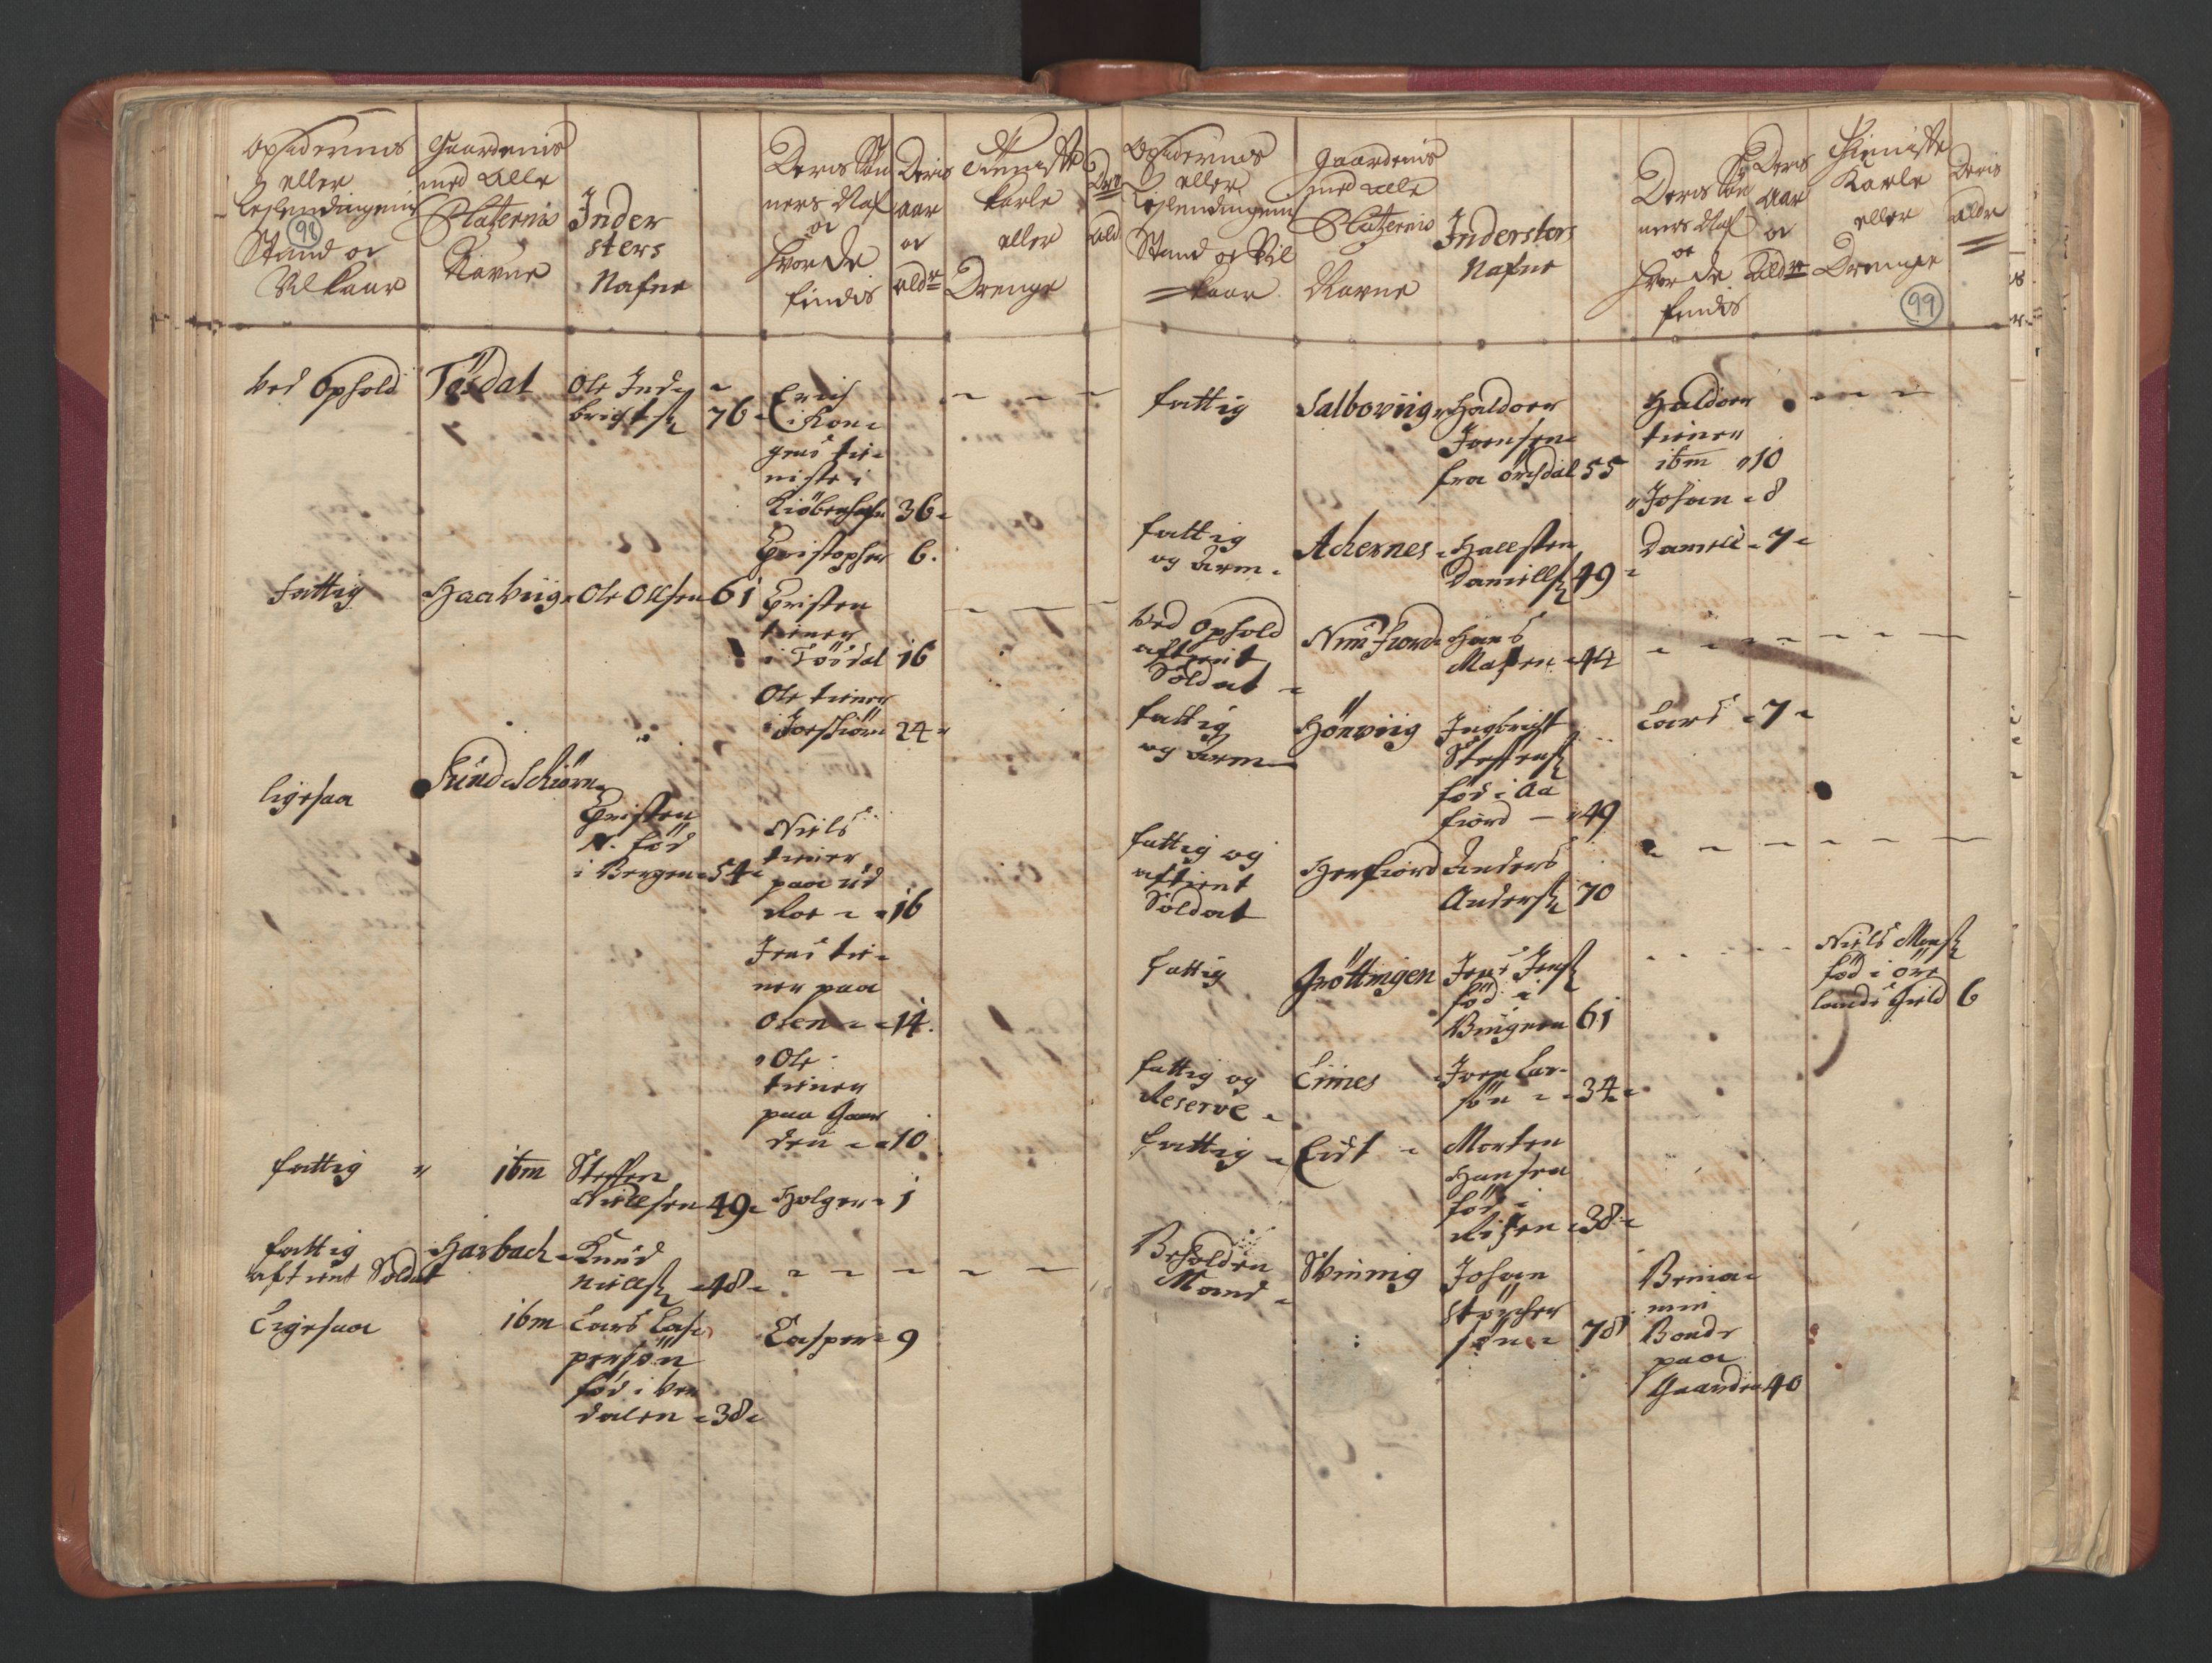 98
Opsidernes
eller
Leylendingenis
Stand oc
Vilkaar
Gaardenis
med alle
Platzernis
Navne
Inder
sters
Nafne
Deris Søn
ners Naf
oc
hvor de
findis
Deris
aar
oc
aldr
Tieniste
Karle
eller
Drenge
ved ophold Tösdal Ole Inde
brichts 76
Erich
i Kon
gens tie
niste i
Kiöbenhafn 36
Christopher 6.
fattig Haaviig Ole Ollsen 61 Christen
tiener
i Tösdal 16
Ole tiener
i Joeskiörn 24
ligesaa Sund Schiörn
Christen
N. föd
i Bergen 54
Niels
tiener
paa ud
Roe 16
Jens tie
ner paa
Osen 14.
Ole
tiener
paa Gaar
den 10
fattig ibm Steffen
Nielsen 49 Holger 1
fattig
aftient Soldat Harbach Knud
Niells 48
Ligesaa ibm Lars Cas
persön
föd i Ver
dalen 38
Casper 9
99
Opsidernes
eller
Leylendingens
Stand oc Vil
kaar
Gaardenis
med alle
Platzernis
Navne
Indersters
Nafne
Deris Søn
ners Naf
oc
hvor de
findis
Deris
Aar
oc
aldr
Tieniste
Karle
eller
Drenge
Deris
aldr
fattig Salboviig Haldoer
Ivensen
fra Örchdal 55
Haldoer
tiener
ibm 10
Johan 8
fattig
og arm Achernes Hallsten
Daniells 49
Daniell 7
Ved ophold
aftient
Soldat Nim Fiord Hans
Madsen 44
fattig
og arm Hönviig Ingbricht
Steffens
föd i Aa
fiord 49
Lars 7
fattig og
aftient
Soldat Herfiord Anders
Anders 70
fattig Gröttingen Jens Jens
föd i
Bingnen 61
Niels Mons
föd i Öre
lands Gield 6
fattig og
Reserve Limes Iver Lar
sön 34
fattig Eidt Morten
Hansen
föd i
Rissen 38
Beholden
Mand Stvinnig Johan
Störcher
sön 78
Benia
min
Bonde
paa
Gaarden 40